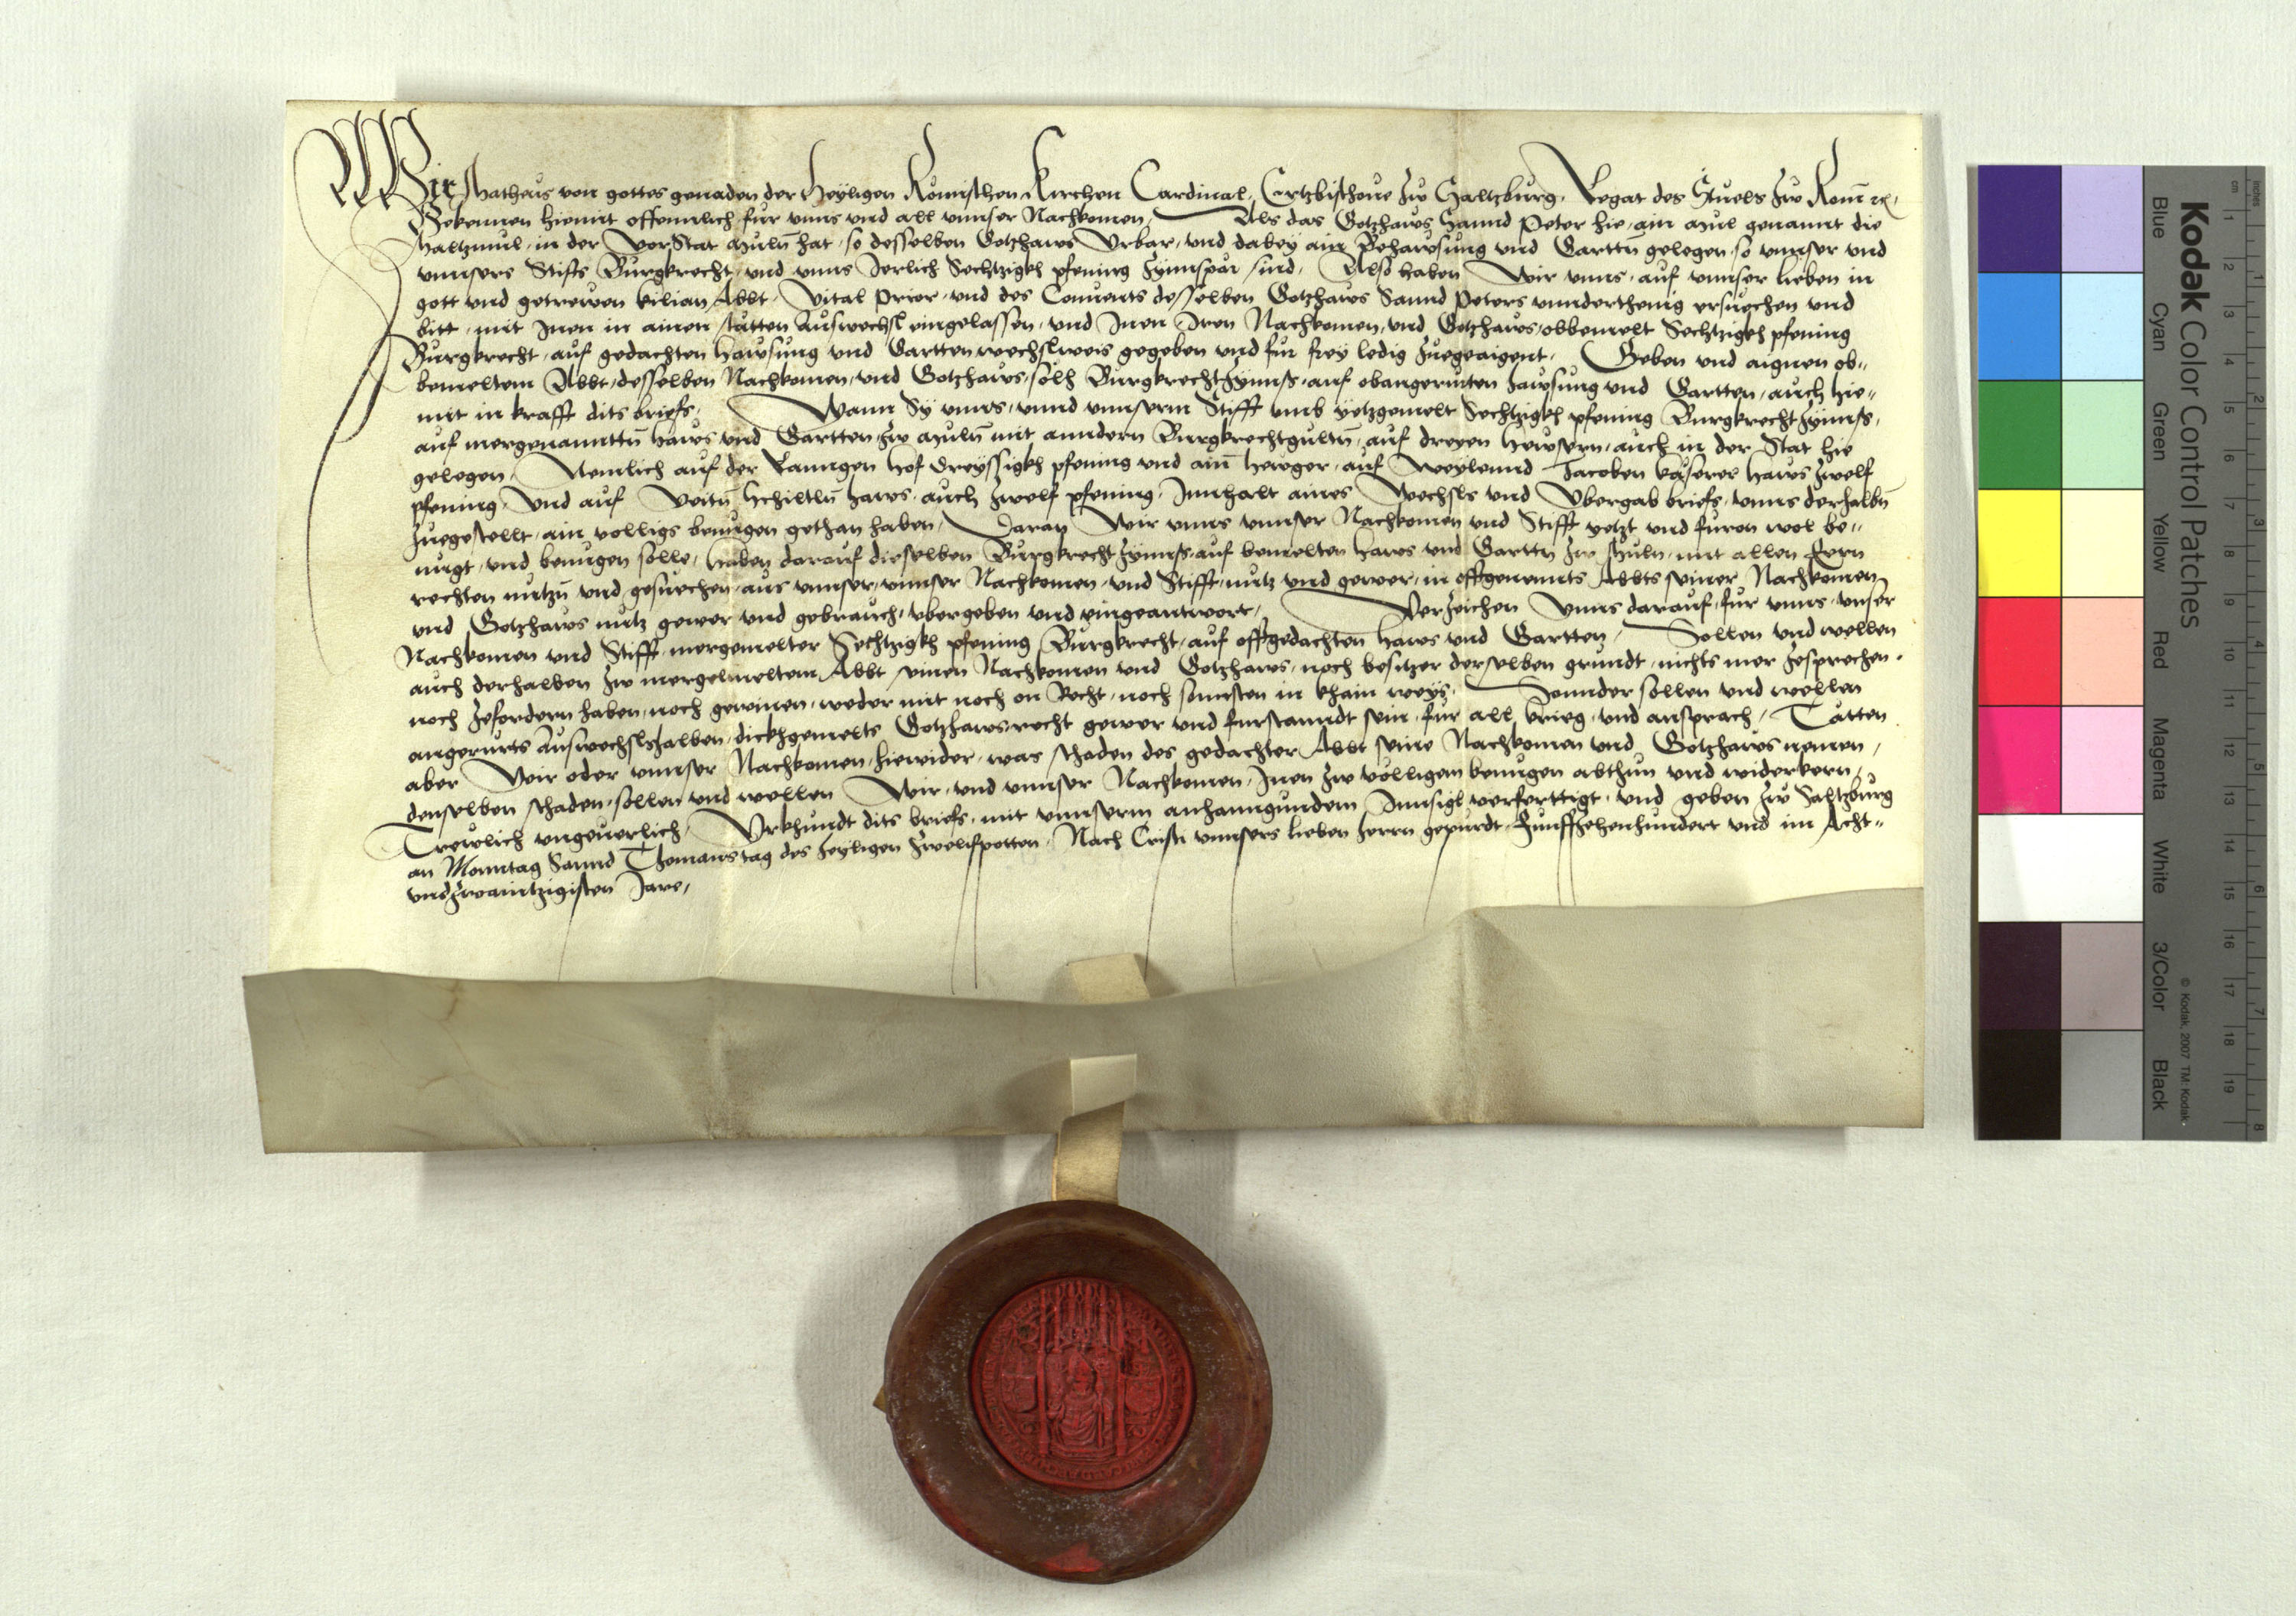 Wir Matheus von gottes genaden der Heyligen Römischen Kirchen Cardinal, Ertzbischoue zw Saltzburg, Legat des Stuels zw Rom̄ ꝛc,
Bekennen hiemit offennlich fur vnns vnd all vnnser Nachkomen, Als das Gotzhaws sannd Peter hie, ain Mul genannt die
Haltzmul, in der VorStat Muln̄ hat, so desselben Gotzhaws Vrbar, vnd dabey ain Behawsung vnd Gartten gelegen, so vnnser vnd
vnnsers Stiffts Burgkrecht, vnd vnns Jerlich Sechtzigkh pfening Zynnspar sind, Also haben Wir vnns, auf vnnser lieben in
gott vnd getrewen Kilian Abbt, Vital Prior, vnd des Conuents desselben Gotzhaws Sannd Peters vnnderthenig ersuechen vnd
bitt, mit Inen in ainen stätten Auswechsl eingelassen, vnd Inen Iren Nachkomen, vnd Gotzhaws, obbemelt Sechtzigkh pfening
Burgkrecht, auf gedachten hawsung vnd Gartten wechslweis gegeben vnd fur frey ledig Zuegeaigent, Geben vnd aignen ob⸗
bemeltem Abbt, desselben Nachkomen, vnd Gotzhaws, solh Burgkrecht Zynnss, auf obangerurten hawsung vnd Gartten, auch hie⸗
mit in krafft dits briefs, Wann Sy vnns, vnnd vnnserm Stifft vmb yetzgemelt Sechtzigkh pfening Burgkrecht Zynnss,
auf mergenanntn̄ haws vnd Gartten, zw Muln̄ mit anndern Burgkrechtgultn̄, auf dreyen hewsern, auch in der Stat hie
gelegen, Nemlich auf der Lanngen hof dreyssigkh pfening vnd ain̄ helbger, auf Weylennd Jacoben kaserer haws Zwelf
pfening, vnd auf Veitn̄ Schiltln̄ haws, auch Zwelf pfening, Innhalt aines Wechsls vnd Vbergab briefs, vnns derhalbn̄
Zuegestellt, ain volligs benuegen gethan haben, Daran Wir vnns vnnser Nachkomen vnd Stifft yetzt vnd furon wol be⸗
nuegt, vnd benuegen solle, haben darauf dieselben Burgkrecht Zynnss, auf bemelten haws vnd Gartn̄ zw Muln, mit allen Eern
rechten nutzn̄ vnd gesuechen, aus vnnser, vnnser Nachkomen, vnd Stifft, nutz vnd gewer, in offtgenennts Abbts seiner Nachkomen
vnd Gotzhaws nutz gewer vnd gebrauch, vbergeben vnd eingeantwort, Verzeichen Vnns darauf, fur vnns, vnser
Nachkomen vnd Stifft, mergemelter Sechtzigkh pfening Burgkrecht, auf offtgedachten haws vnd Gartten, Sollen vnd wellen
auch derhalben zw mergemeltem Abbt, seinen Nachkomen vnd Gotzhaws, noch besitzer derselben grundt, nichts mer Zesprechen,
noch Zefordern haben, noch gewinen, weder mit noch on Recht, noch sunsten in khain weys, Sonnder sollen vnd wellen
angerurts Auswechsls halben, dickhgemelts Gotzhaws recht gewer vnd furstanndt sein, fur all krieg, vnd ansprach, Tätten
aber Wir oder vnnser Nachkomen, hiewider, was schaden des gedachter Abbt seine Nachkomen vnd Gotzhaws nemen,
denselben schaden, sollen vnd wellen Wir, vnd vnnser Nachkomen, Inen zw volligem benuegen abthun vnd widerkern,
Trewlich vngeuerlich, Vrkhundt dits briefs, mit vnnserm anhanngundem Innsigl verferttigt, vnd geben zw Saltzburg
an Monntag Sannd Thomans tag des heyligen Zwelfpotten, Nach Cristi vnnsers lieben herrn gepurdt, Funffzehenhundert vnd im Acht⸗
vndzwaintzigisten Jare,
Kodak Color Control Patches
© Kodak, 2007 TM: Kodak.
Blue Cyan Green Yellow Red Magenta White 3/Color Black
cm 1 2 3 4 5 6 7 8 9 10 11 12 13 14 15 16 17 18 19
inches 1 2 3 4 5 6 7 8